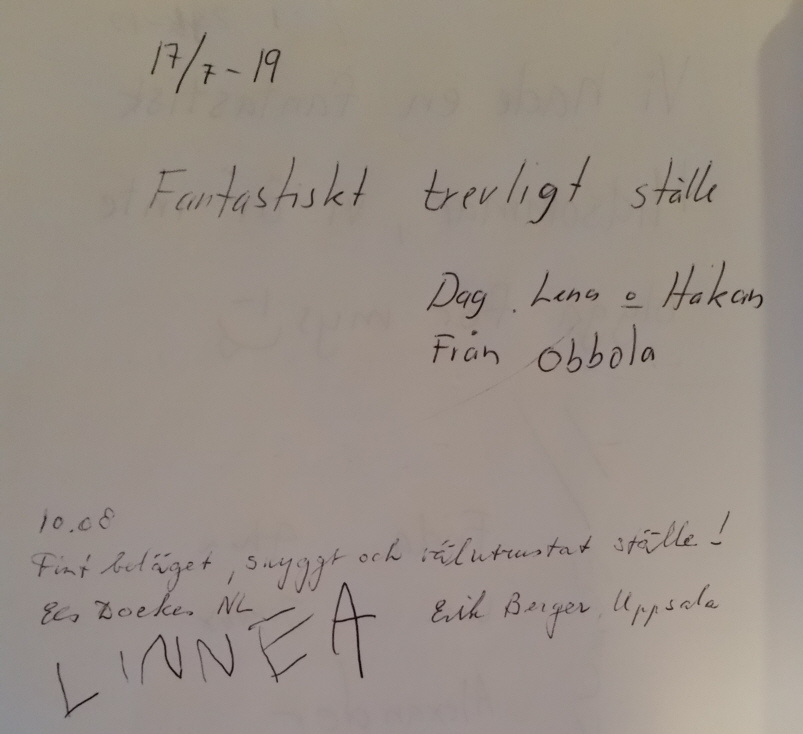 17/7-19
Fantastiskt trevligt ställe
Dag. Lena o Håkan
Från Obbola
10.08
Fint beläget, snyggt och välutrustat ställe!
Els Doekes NL Erik Berger, Uppsala
LINNEA